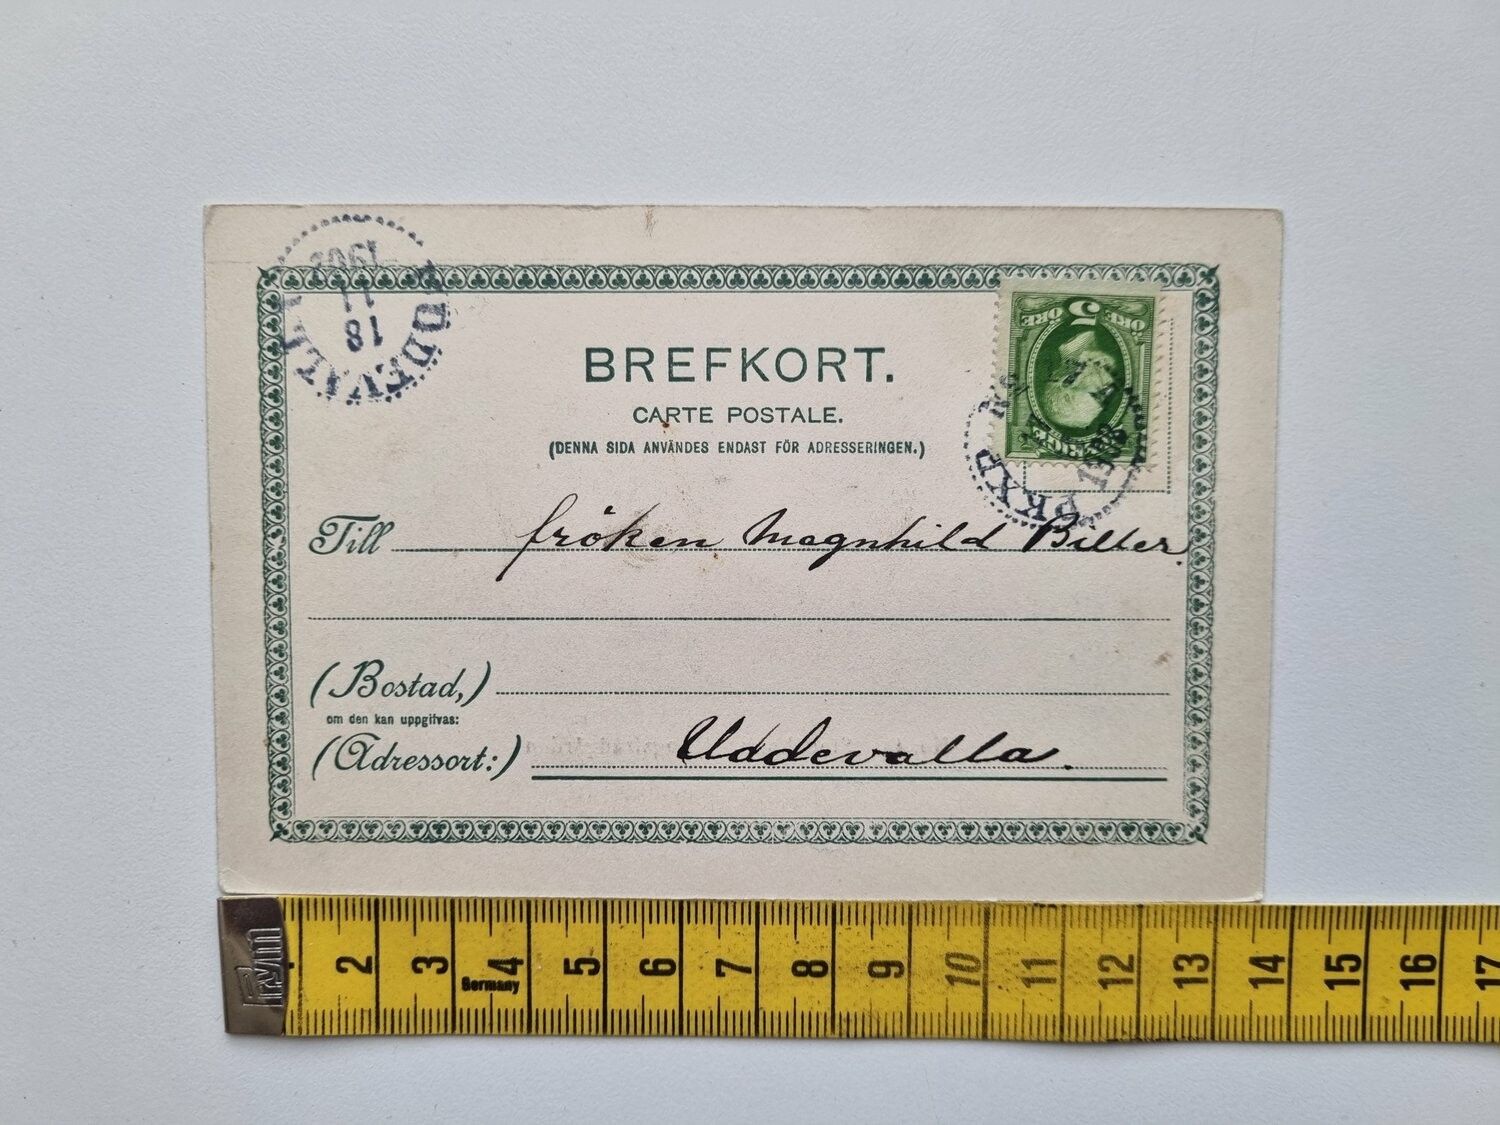 UDDEVALLA
18
11
1902
BREFKORT.
CARTE POSTALE.
(DENNA SIDA ANVÄNDES ENDAST FÖR ADRESSERINGEN.)
5
ÖRE ÖRE
SVERIGE
PKXP
Till fröken Magnhild Biller.
(Bostad,)
om den kan uppgifvas:
(Adressort:) Uddevalla.
Prym
2 3 4 5 6 7 8 9 10 11 12 13 14 15 16 17
Germany